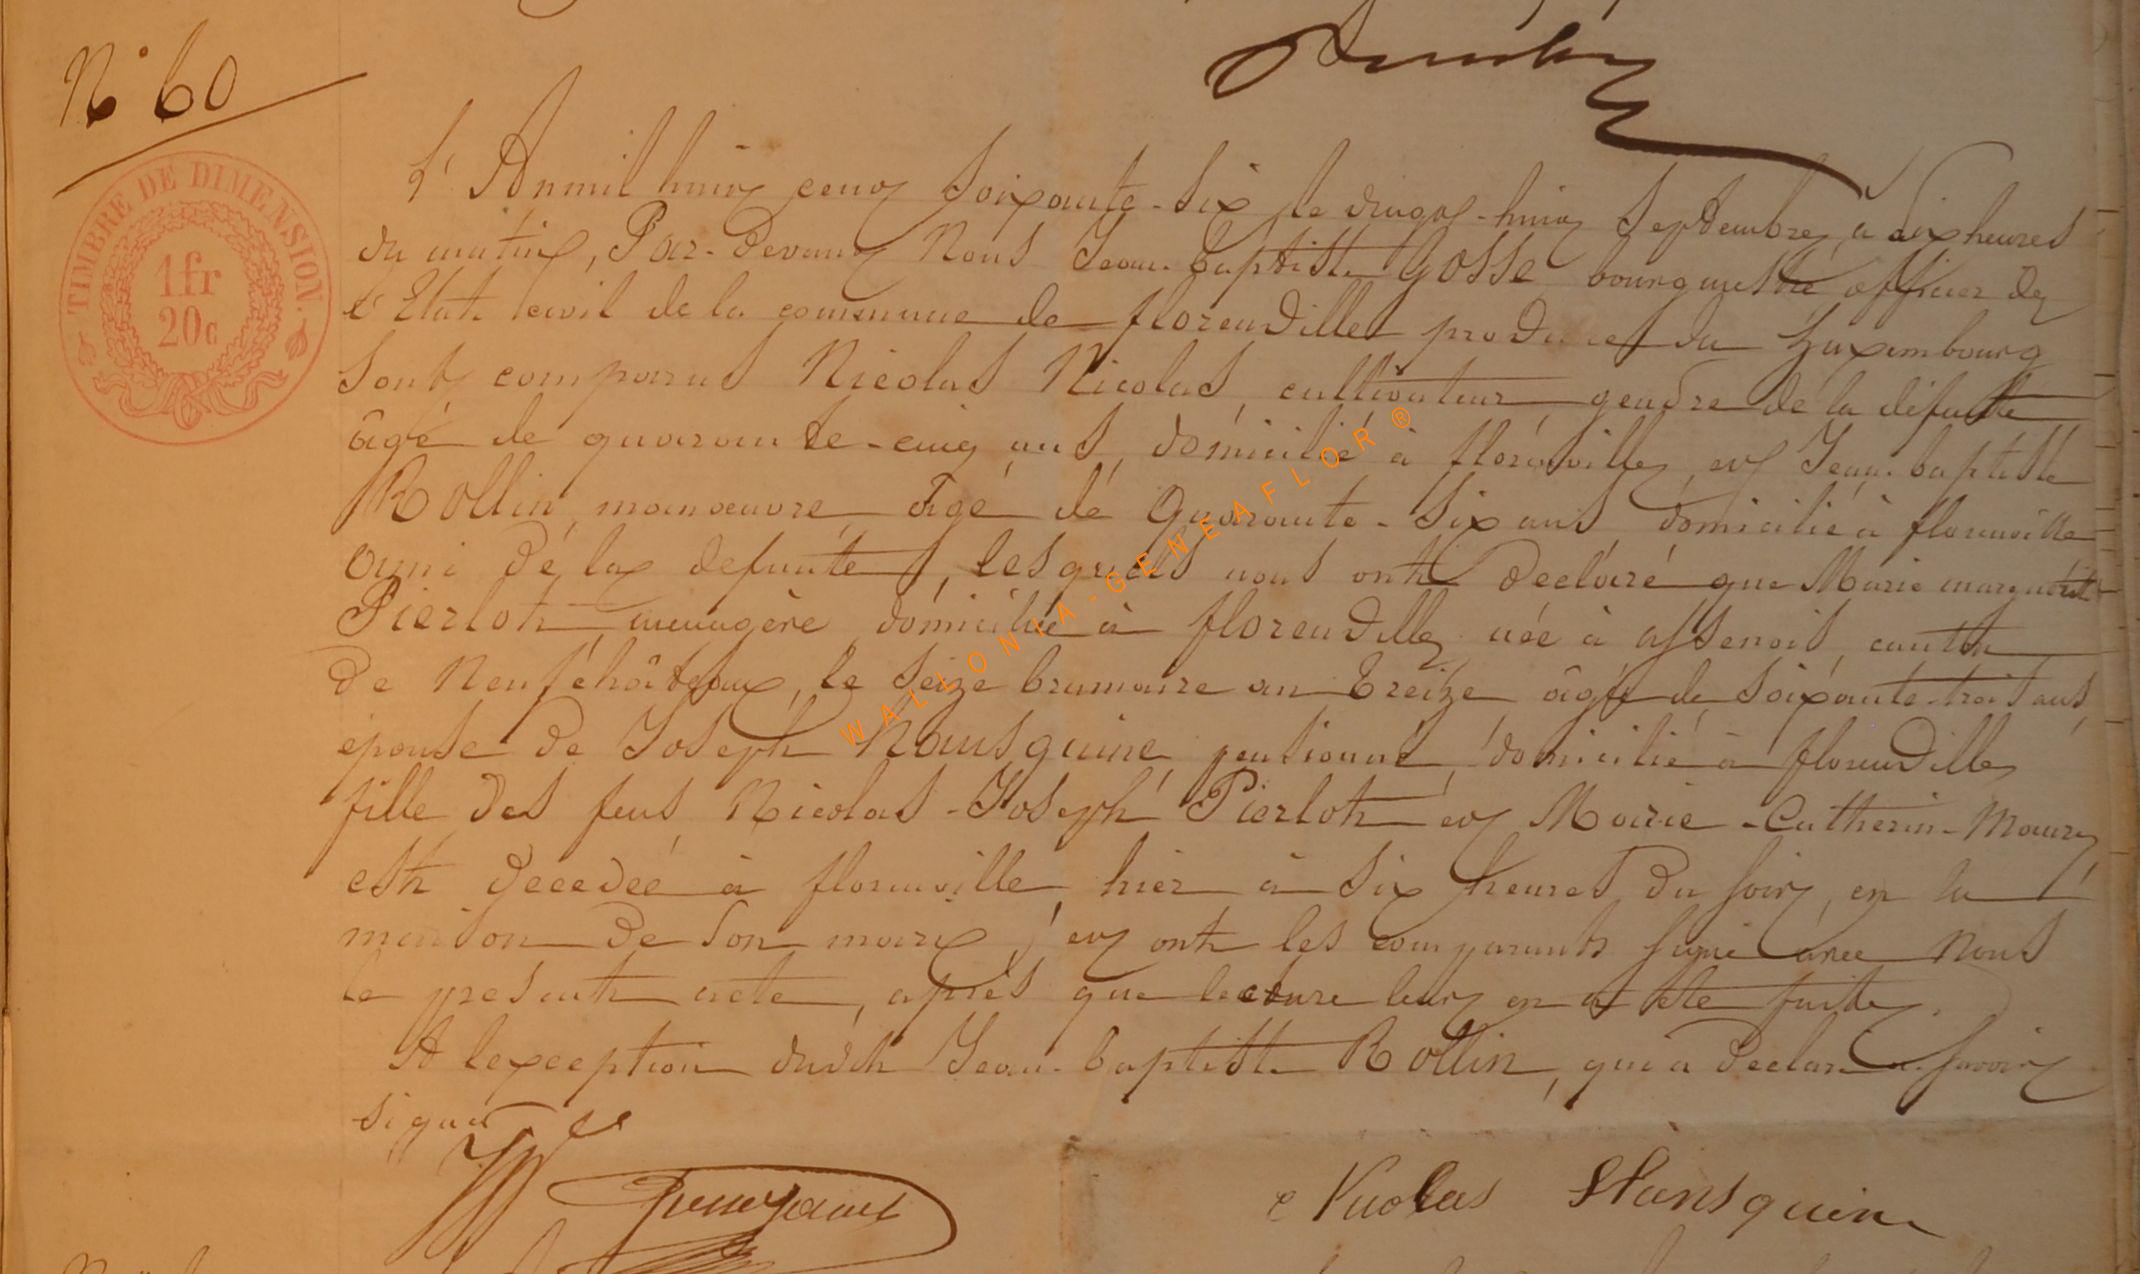 N° 60
TIMBRE DE DIMENSION.
1 fr
20c
L'An mil huit cent soixante-six le vingt-huit Septembre, à dix heures
du matin, Par-devant Nous Jean-baptiste Gosse bourgmestre officier de
l'Etat civil de la commune de florenville province du Luxembourg
sont comparus Nicolas Nicolas, cultivateur, gendre de la défunte
âgé de quarante-cinq ans, domicilié à florenville, et Jean-baptiste
Rollin, manoeuvre, âgé de quarante-six ans, domicilié à florenville
ami de la defunte, lesquels nous ont declaré que Marie marguerite
Pierlot, menagère, domiciliée à florenville née à assenois, canton
de Neufchâteau, le seize brumaire an treize âgée de soixante-trois ans,
epouse de Joseph Hansquine, pensionné, domicilié à florenville
fille des feus Nicolas-Joseph Pierlot et Marie-Catherin-Maury
est decedée à florenville, hier à six heures du soir, en la
maison de son mari, et ont les comparants signé avec Nous
le present acte, après que lecture leur en a été faite.
A lexception dudit Jean-baptiste Rollin, qui a declaré ne savoir
signer
Nicolas Hansquine
WALLONIA-GENEAFLOR®